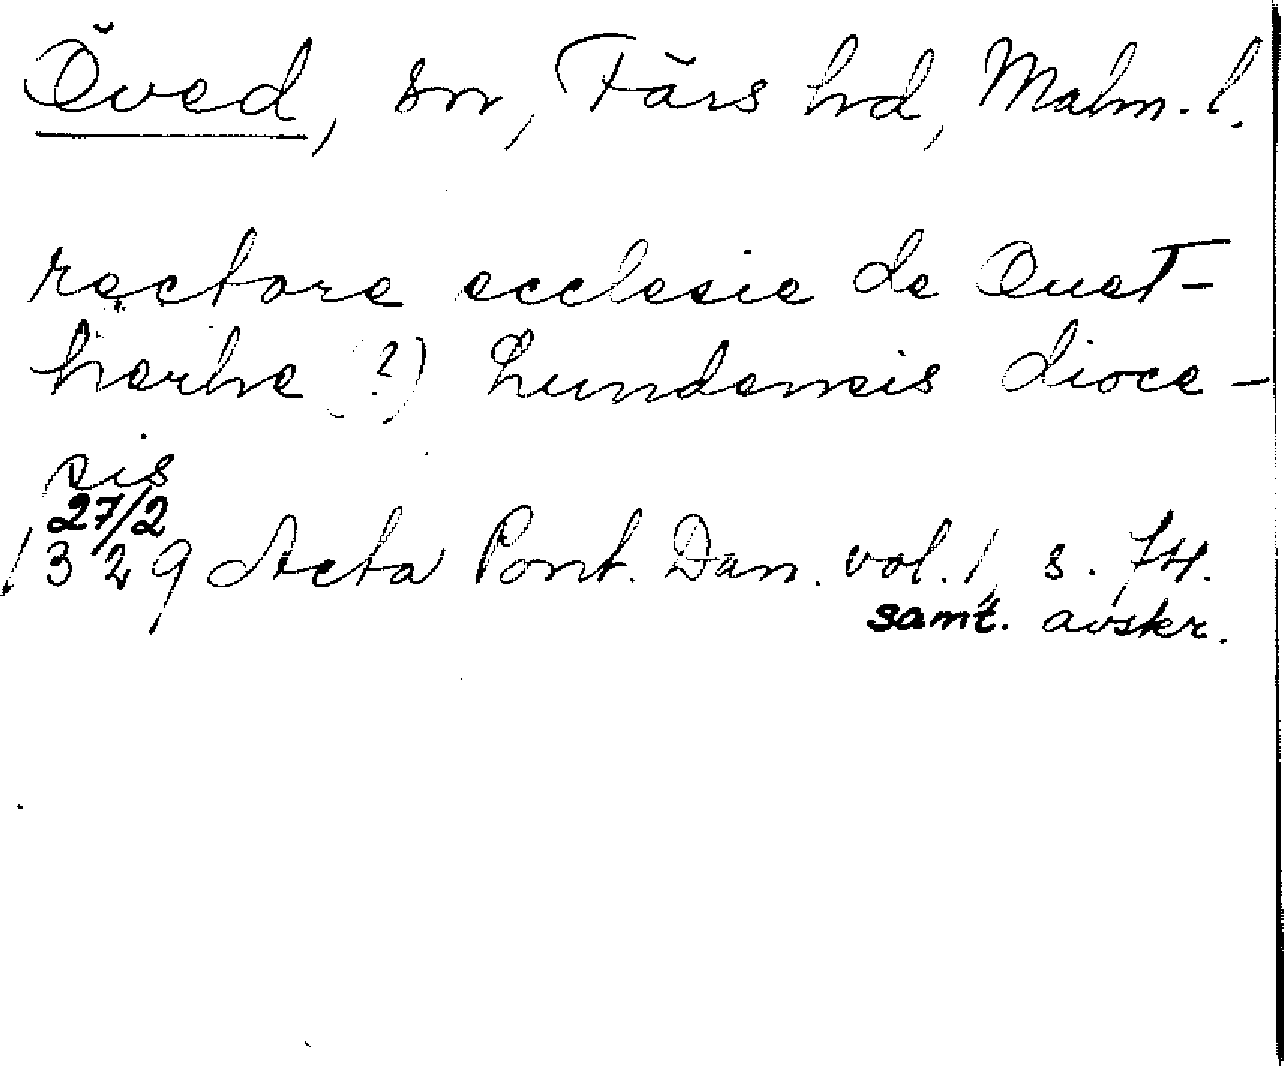 Öved, sn, Färs hd, Malm. l.
rectore ecclesie de Ouet-
herhe (?) Lundensis dioce-
sis
27/2
1329 Acta Pont. Dan. vol. 1, s. 74.
samt. avskr.